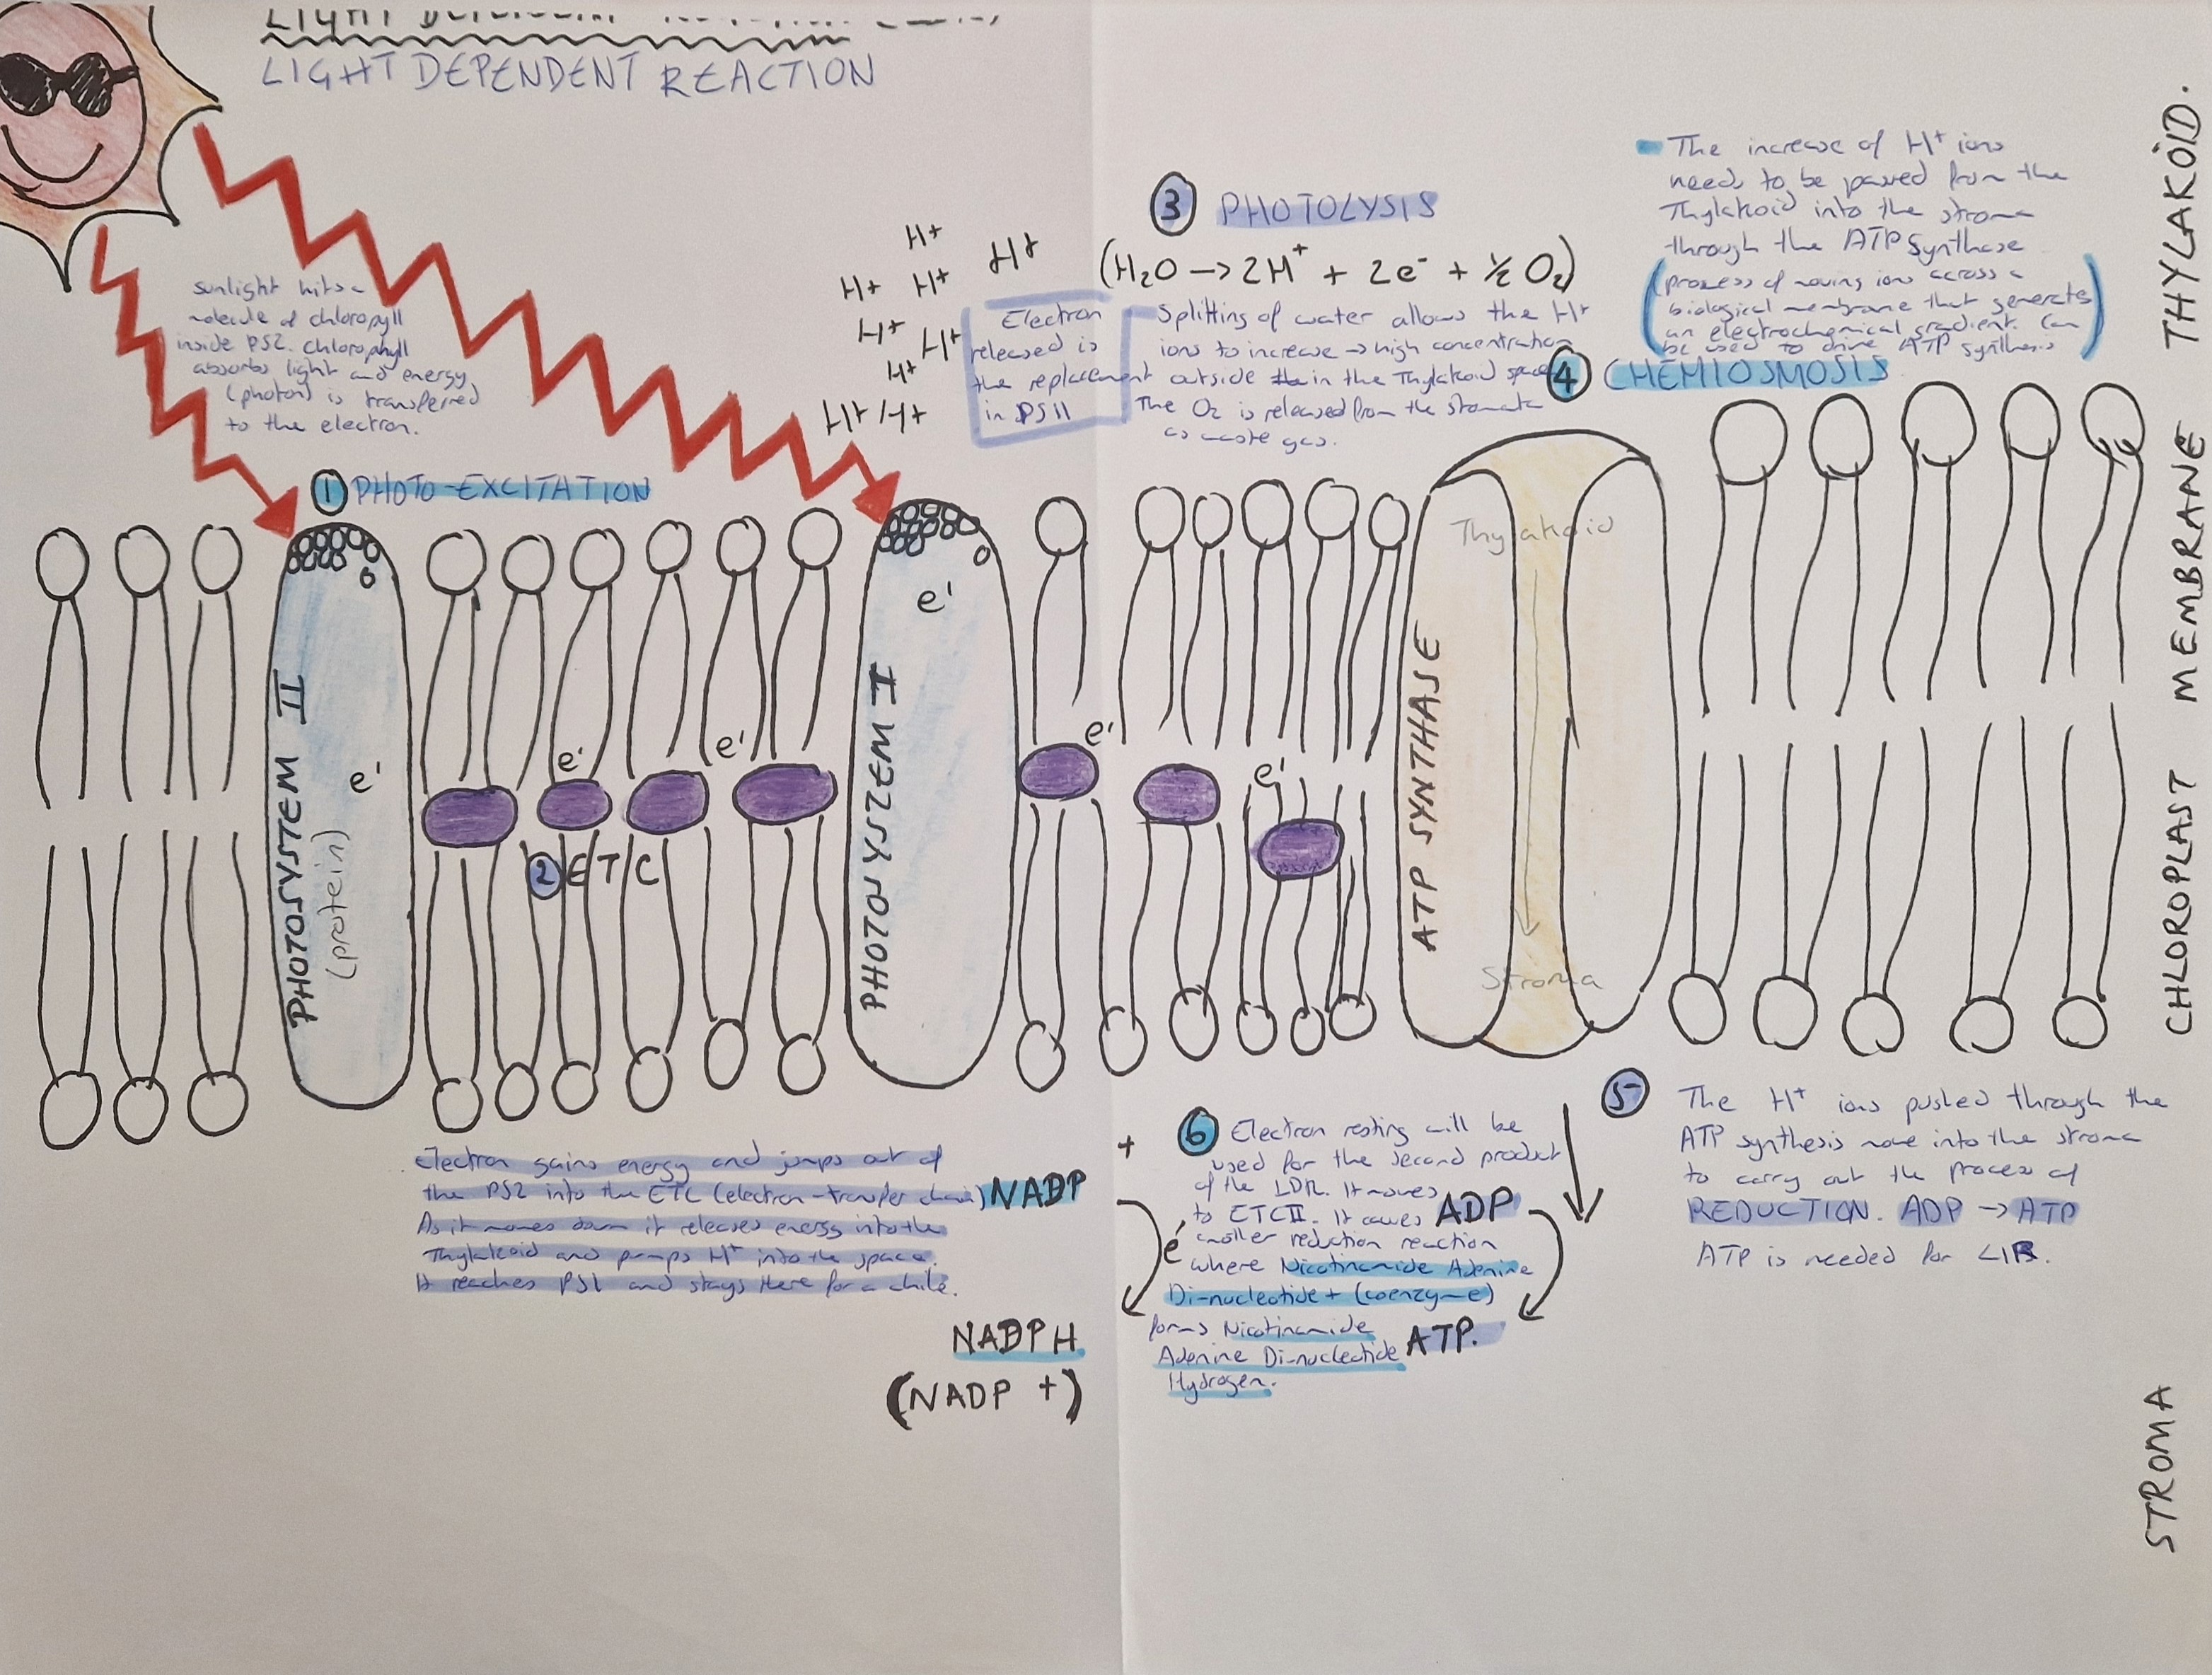 LIGHT DEPENDENT REACTION
sunlight hits a
molecule of chloropyll
inside PS2. Chlorophyll
absorbs light and energy
(photon) is transferred
to the electron.
1 PHOTO-EXCITATION
H+
H+
H+ H+
H+ H+
H+
H+ H+
3 PHOTOLYSIS
(H₂O → 2H⁺ + 2e⁻ + ½ O₂)
Electron
released is
the replacement
in PSII
Splitting of water allows the H+
ions to increase → high concentration
outside the in the Thylakoid space
The O₂ is released from the stomata
as waste gas.
The increase of H⁺ ions
needs to be passed from the
Thylakoid into the stroma
through the ATP synthase
(process of moving ions across a
biological membrane that generates
an electrochemical gradient. Can
be used to drive ATP synthesis)
4 CHEMIOSMOSIS
THYLAKOID.
CHLOROPLAST MEMBRANE
STROMA
PHOTOSYSTEM II
(protein)
e'
e'
e'
2 ETC
PHOTOSYSTEM I
e'
e'
e'
ATP SYNTHASE
Thylakoid
Stroma
Electron gains energy and jumps out of
the PS2 into the ETC (electron-transfer chain)
As it moves down it releases energy into the
Thylakoid and pumps H⁺ into the space.
It reaches PS1 and stays there for a while.
NADP
+
e'
NADPH
(NADP +)
6 Electron resting will be
used for the second product
of the LDR. It moves
to ETCII. It causes
another reduction reaction
where Nicotinamide Adenine
Di-nucleotide + (coenzyme)
forms Nicotinamide
Adenine Di-nucleotide
Hydrogen.
ADP
ATP.
5 The H⁺ ions pushed through the
ATP synthesis move into the stroma
to carry out the process of
REDUCTION. ADP → ATP
ATP is needed for LIR.